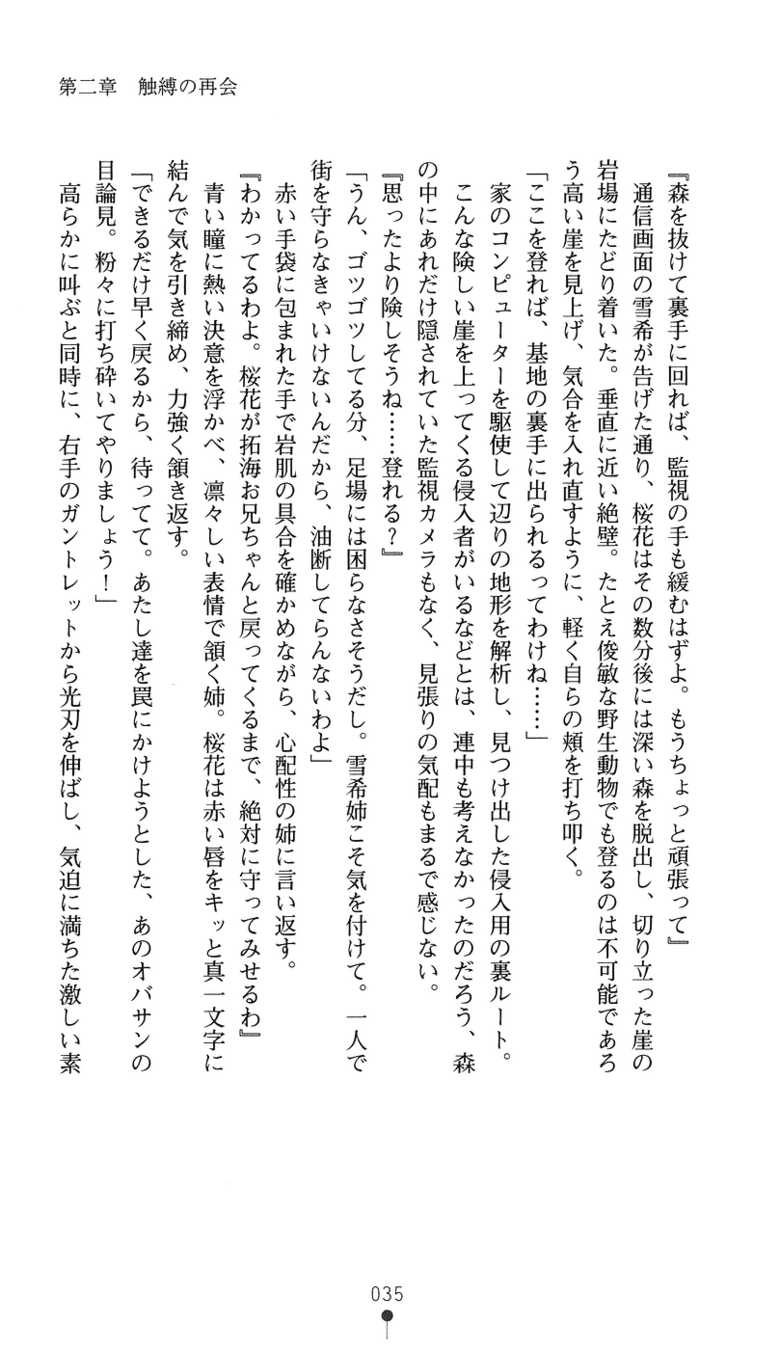 第二章　触縛の再会
『森を抜けて裏手に回れば、監視の手も緩むはずよ。もうちょっと頑張って』
　通信画面の雪希が告げた通り、桜花はその数分後には深い森を脱出し、切り立った崖の
岩場にたどり着いた。垂直に近い絶壁。たとえ俊敏な野生動物でも登るのは不可能であろ
う高い崖を見上げ、気合を入れ直すように、軽く自らの頬を打ち叩く。
「ここを登れば、基地の裏手に出られるってわけね……」
　家のコンピューターを駆使して辺りの地形を解析し、見つけ出した侵入用の裏ルート。
　こんな険しい崖を上ってくる侵入者がいるなどとは、連中も考えなかったのだろう、森
の中にあれだけ隠されていた監視カメラもなく、見張りの気配もまるで感じない。
『思ったより険しそうね……登れる？』
「うん、ゴツゴツしてる分、足場には困らなさそうだし。雪希姉こそ気を付けて。一人で
街を守らなきゃいけないんだから、油断してらんないわよ」
　赤い手袋に包まれた手で岩肌の具合を確かめながら、心配性の姉に言い返す。
『わかってるわよ。桜花が拓海お兄ちゃんと戻ってくるまで、絶対に守ってみせるわ』
　青い瞳に熱い決意を浮かべ、凛々しい表情で頷く姉。桜花は赤い唇をキッと真一文字に
結んで気を引き締め、力強く頷き返す。
「できるだけ早く戻るから、待ってて。あたし達を罠にかけようとした、あのオバサンの
目論見。粉々に打ち砕いてやりましょう！」
　高らかに叫ぶと同時に、右手のガントレットから光刃を伸ばし、気迫に満ちた激しい素
035